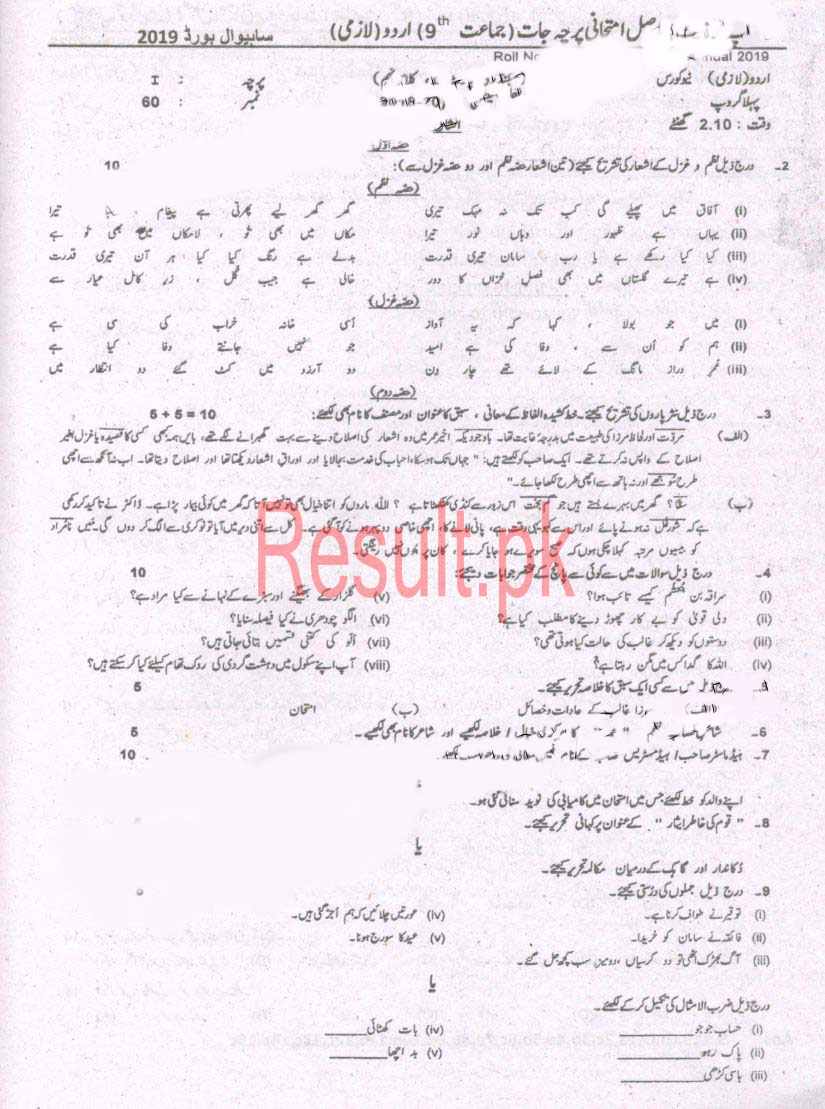 اصل امتحانی پرچہ جات (جماعت 9th) اردو (لازمی) ساہیوال بورڈ 2019
Roll No nual 2019
اردو (لازمی) نیو کورس پرچہ : I
پہلا گروپ نمبر : 60
وقت : 2.10 گھنٹے انشائیہ
حصہ اول
2۔ درج ذیل نظم و غزل کے اشعار کی تشریح کیجئے (تین اشعار حصہ نظم اور دو حصہ غزل سے): 10
(حصہ نظم)
(i) آفاق میں پھیلے گی کب تک نہ مہک تیری گھر گھر لیے پھرتی ہے پیغام ، تیرا
(ii) یہاں ہے ظہور اور وہاں نور تیرا مکاں میں بھی تو ، لامکاں میں بھی تو ہے
(iii) کیا کیا رکھے ہے یا رب سامان تیری قدرت بدلے ہے رنگ کیا کیا ہر آن تیری قدرت
(iv) ہے تیرے گلستاں میں بھی فصل خزاں کا دور خالی ہے جیب گل ، زر کامل عیار سے
(حصہ غزل)
(i) میں جو بولا ، کہا کہ یہ آواز اسی خانہ خراب کی سی ہے
(ii) ہم کو اُن سے ، وفا کی ہے امید جو نہیں جانتے وفا کیا ہے
(iii) عمر دراز مانگ کے لائے تھے چار دن دو آرزو میں کٹ گئے دو انتظار میں
(حصہ دوم)
3۔ درج ذیل نثر پاروں کی تشریح کیجئے۔ خط کشیدہ الفاظ کے معانی ، سبق کا عنوان اور مصنف کا نام بھی لکھئے: 5 + 5 = 10
(الف) مروّت اور لحاظ مرزا کی طبیعت میں بدرجہ غایت تھا۔ باوجودیکہ اخیر عمر میں وہ اشعار کی اصلاح دینے سے بہت گھبرانے لگے تھے، بایں ہمہ کبھی کسی کا قصیدہ یا غزل بغیر
اصلاح کے واپس نہ کرتے تھے۔ ایک صاحب کو لکھتے ہیں: "جہاں تک ہو سکا، احباب کی خدمت بجا لایا اور اوراقِ اشعار دیکھتا تھا اور اصلاح دیتا تھا۔ اب نہ آنکھ سے اچھی
طرح سُوجھے اور نہ ہاتھ سے اچھی طرح لکھا جائے۔"
(ب) سقا! گھر میں بہرے بستے ہیں جو کم بخت اس زور سے کنڈی کھٹکھٹاتا ہے ؟ اللہ ماروں کو اتنا خیال بھی تو نہیں آتا کہ گھر میں کوئی بیمار پڑا ہے۔ ڈاکٹر نے تاکید کر رکھی
ہے کہ شوروغل نہ ہونے پائے اور اس سقے کو یہی وقت ہے، پانی لانے کا، اچھی خاصی دوپہر ہونے کو آ گئی ہے۔ کل سے اتنی دیر میں آیا تو نوکری سے الگ کر دوں گی۔ میں نامُراد
کو بیسوں مرتبہ کہلا چکی ہوں کہ صبح سویرے ہو جایا کرے ، کان پر جُوں نہیں رینگتی۔
4۔ درج ذیل سوالات میں سے کوئی سے پانچ کے مختصر جوابات دیجئے: 10
(i) سراقہ بن جُعشم کیسے تائب ہوا؟ (v) گلزار کے بھیگنے اور سبزے کے نہانے سے کیا مراد ہے؟
(ii) دلی قویٰ کو بے کار چھوڑ دینے کا مطلب کیا ہے؟ (vi) الگو چودھری نے کیا فیصلہ سنایا؟
(iii) دوستوں کو دیکھ کر غالب کی حالت کیا ہوتی تھی؟ (vii) اُلّو کی کتنی قسمیں بتائی جاتی ہیں؟
(iv) اللہ کا گدا کس میں مگن رہتا ہے؟ (viii) آپ اپنے سکول میں دہشت گردی کی روک تھام کیلئے کیا کر سکتے ہیں؟
ذیل میں سے کسی ایک سبق کا خلاصہ تحریر کیجئے۔ 5
(الف) مرزا غالب کے عادات و خصائل (ب) امتحان
6۔ شامل نصاب نظم "حمد" کا مرکزی خیال / خلاصہ لکھیے اور شاعر کا نام بھی لکھیے۔ 5
7۔ ہیڈ ماسٹر صاحب / ہیڈ مسٹریس صاحبہ کے نام فیس معافی 10
اپنے والد کو خط لکھئے جس میں امتحان میں کامیابی کی نوید سنائی گئی ہو۔
8۔ "قوم کی خاطر ایثار" کے عنوان پر کہانی تحریر کیجئے۔
یا
دُکاندار اور گاہک کے درمیان مکالمہ تحریر کیجئے۔
9۔ درج ذیل جملوں کی درستی کیجئے۔
(i) توقیر نے طواف کرنا ہے۔ (iv) عورتیں چلائیں کہ ہم اُجڑ گئی ہیں۔
(ii) فائقہ نے سامان کو خریدا۔ (v) عید کا سورج ہونا۔
(iii) آگ بھڑک اٹھی تو دو کرسیاں ، دو میزیں سب کچھ جل گئے۔
یا
درج ذیل ضرب الامثال کی تکمیل کر کے لکھئے۔
(i) حساب جو جو ________ (iv) بات کھٹائی ________
(ii) پاک رہو ________ (v) بد اچھا ________
(iii) باسی کڑھی ________
Result.pk